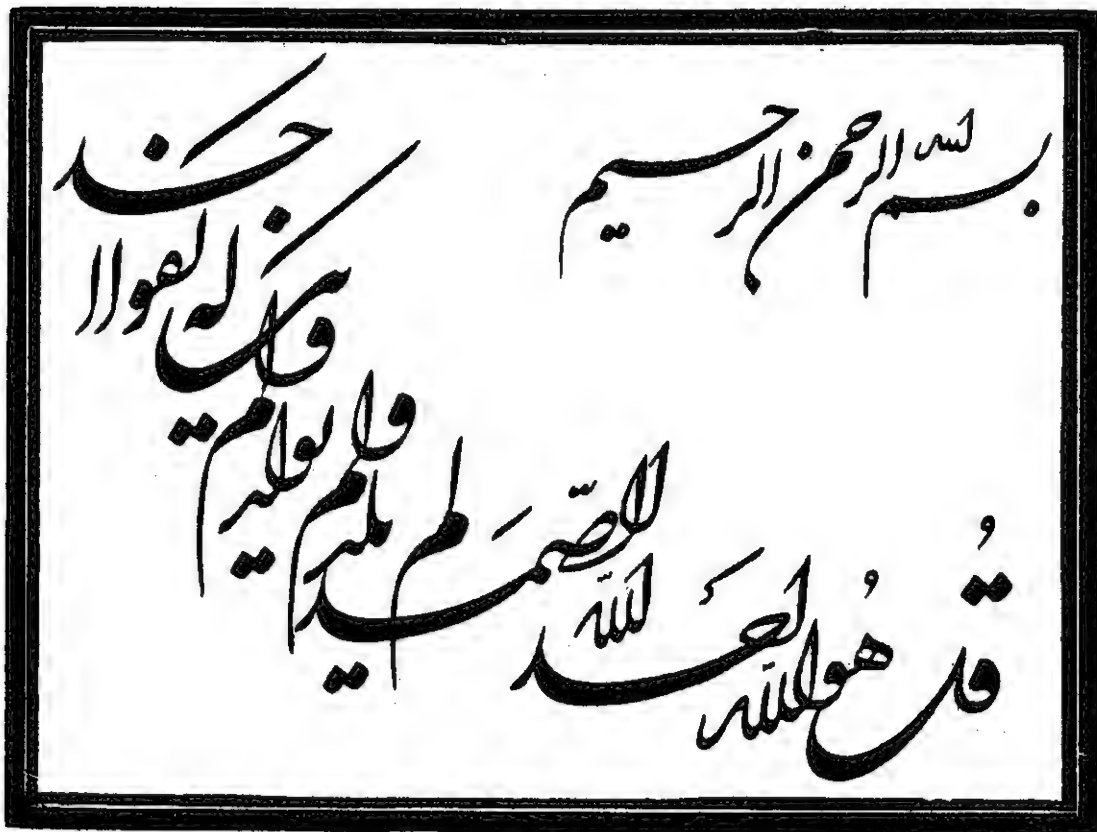 بسم الله الرحمن الرحيم
قُل هُوَ الله احَد
الله الصّمَد
لم يلد
ولم يولد
ولم يكن له كفوا احد